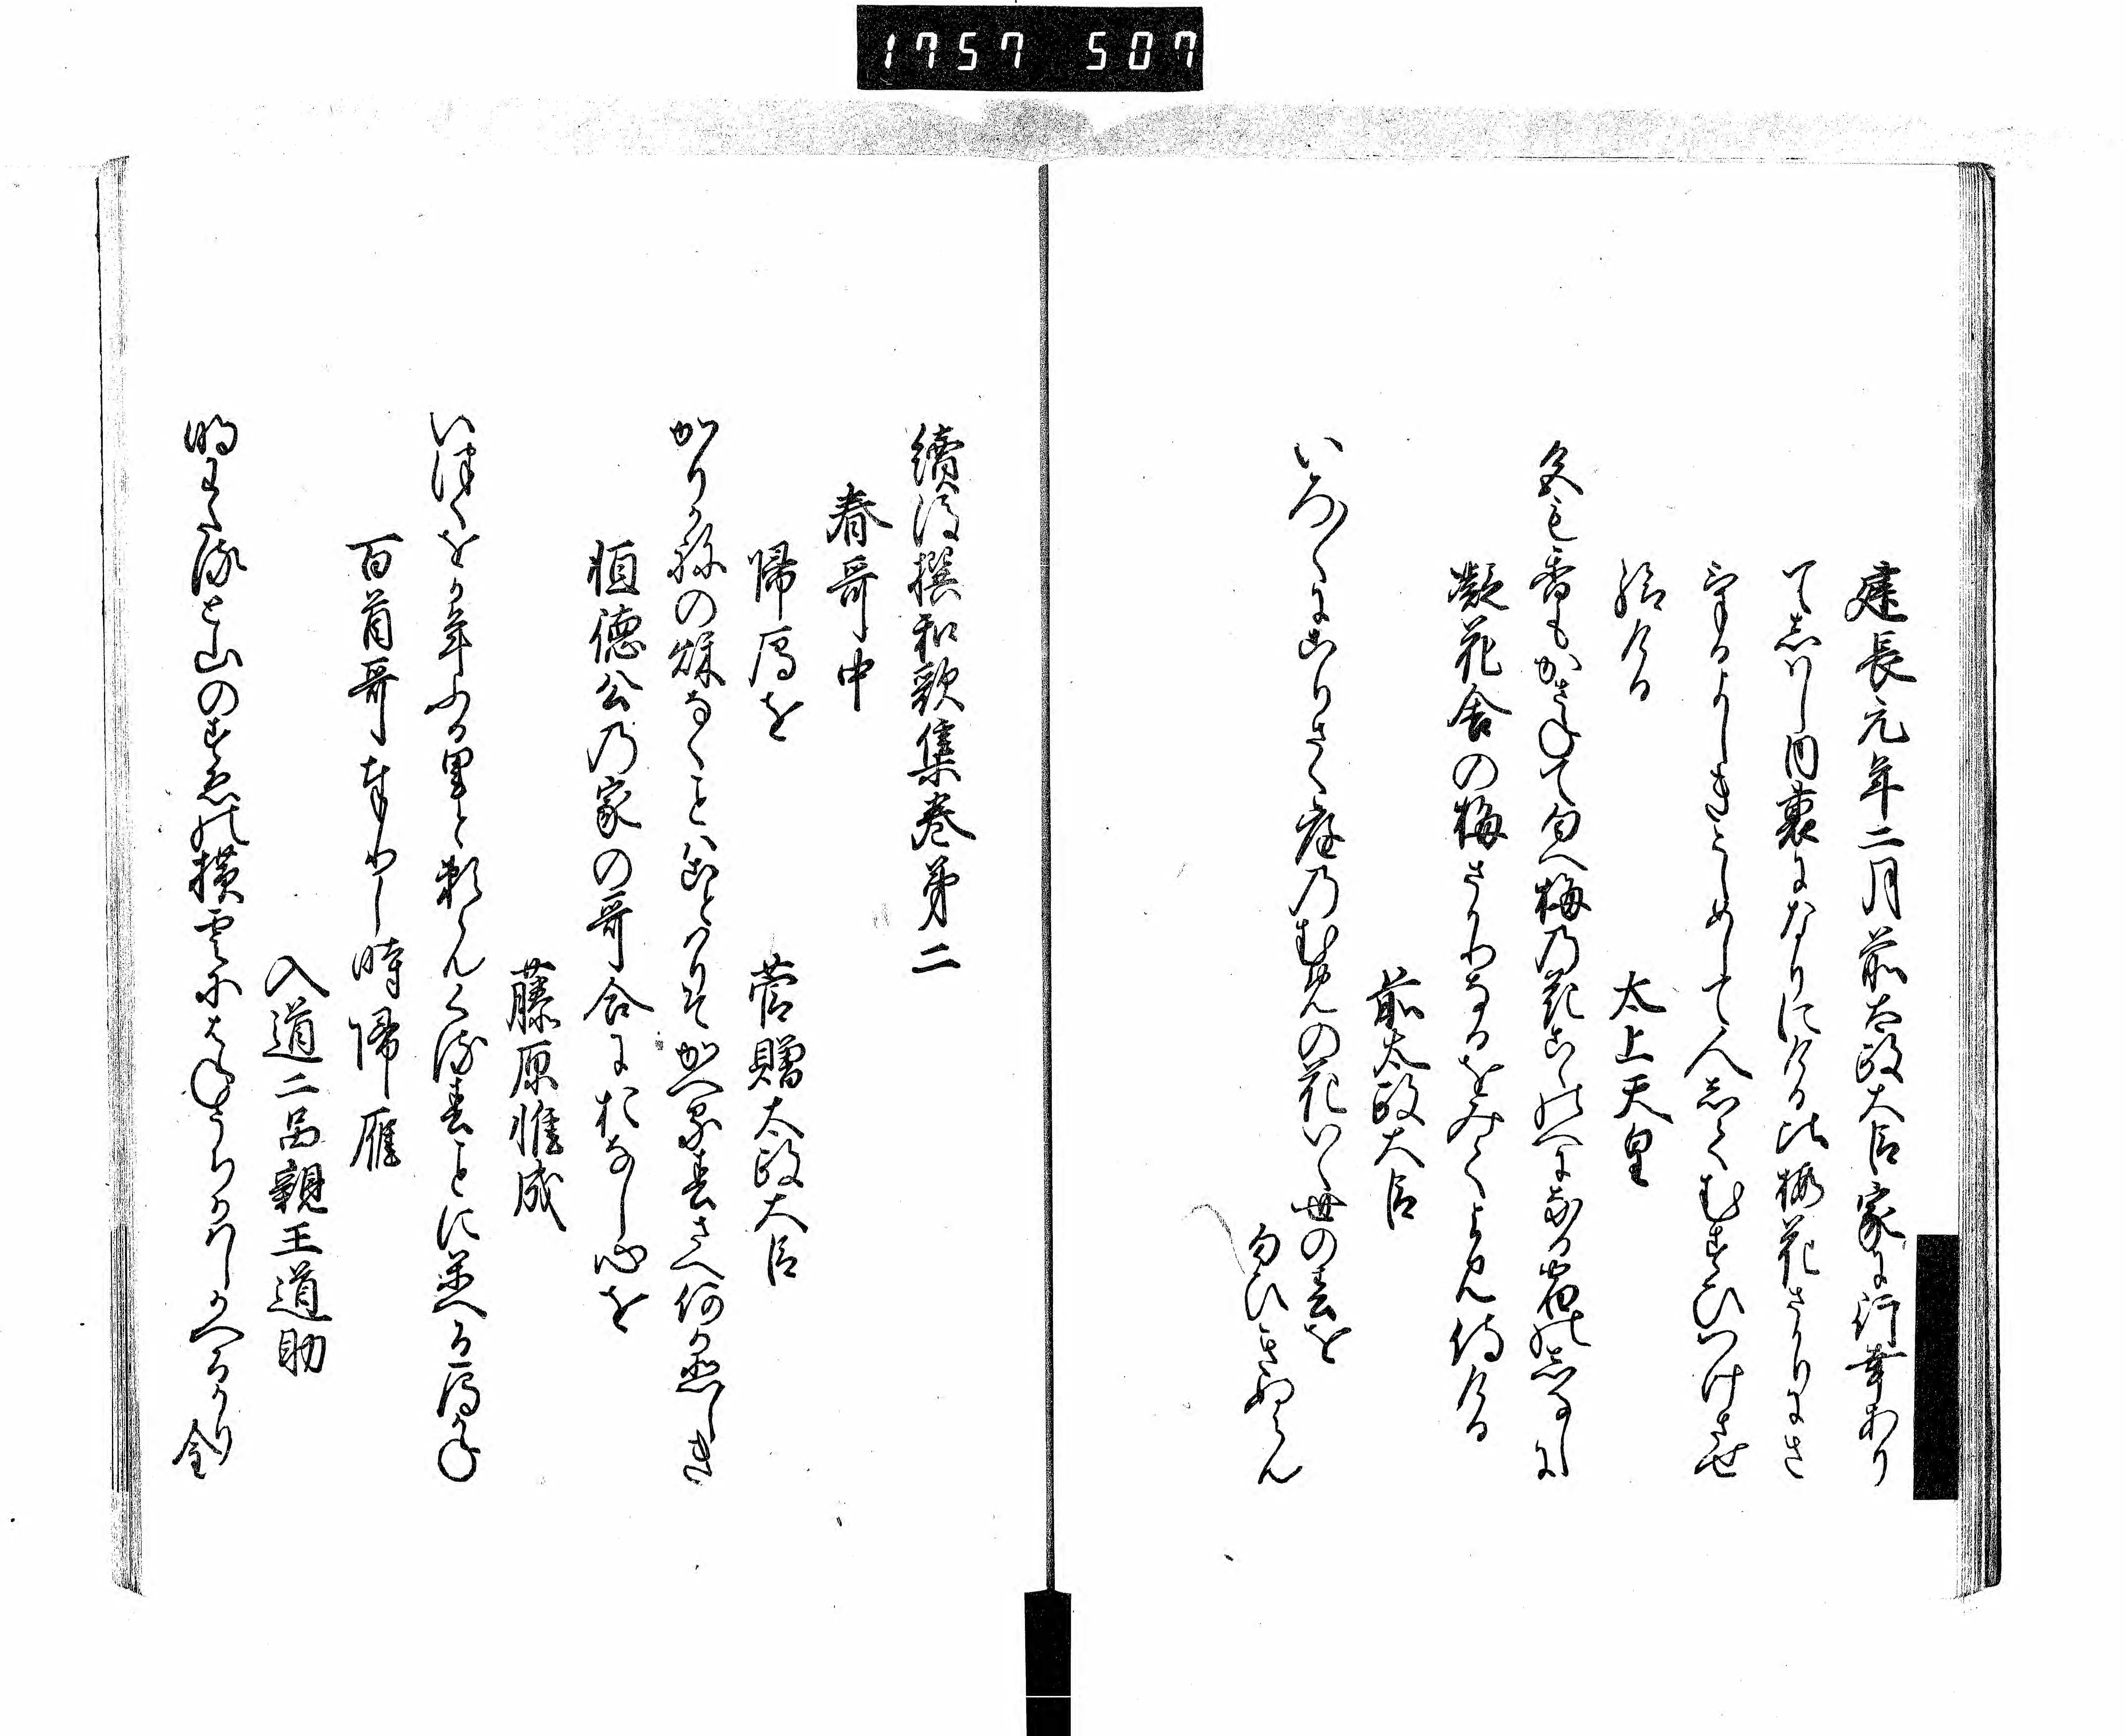 1757 507
建長元年二月前太政大臣家に行幸あり
てしはし内裏になりにける比梅花さかりにさ
きたるよしきこしめして人しくむすひつけさせ
給ける
太上天皇
色も香もかさねて匂へ梅の花こゝのへになる宿のしるしに
凝花舎の梅さかりなるをみてよみ侍ける
前太政大臣
いろ〳〵にえたりさく庭のむめの花いくよの春を
匂ひきぬらん
續後撰和歌集巻第二
春哥中
帰雁を
菅贈太政大臣
かりかねの秋なくことはことはりそかへる春さへ何かかなしき
恒徳公の家の哥合におなし心を
藤原惟成
いつくをか年ふる里と頼らんくる春ことに帰る雁かね
百首哥奉りし時帰雁
入道二品親王道助
明わたると山のすゑの横雲にはねうちかはしかへるかり金